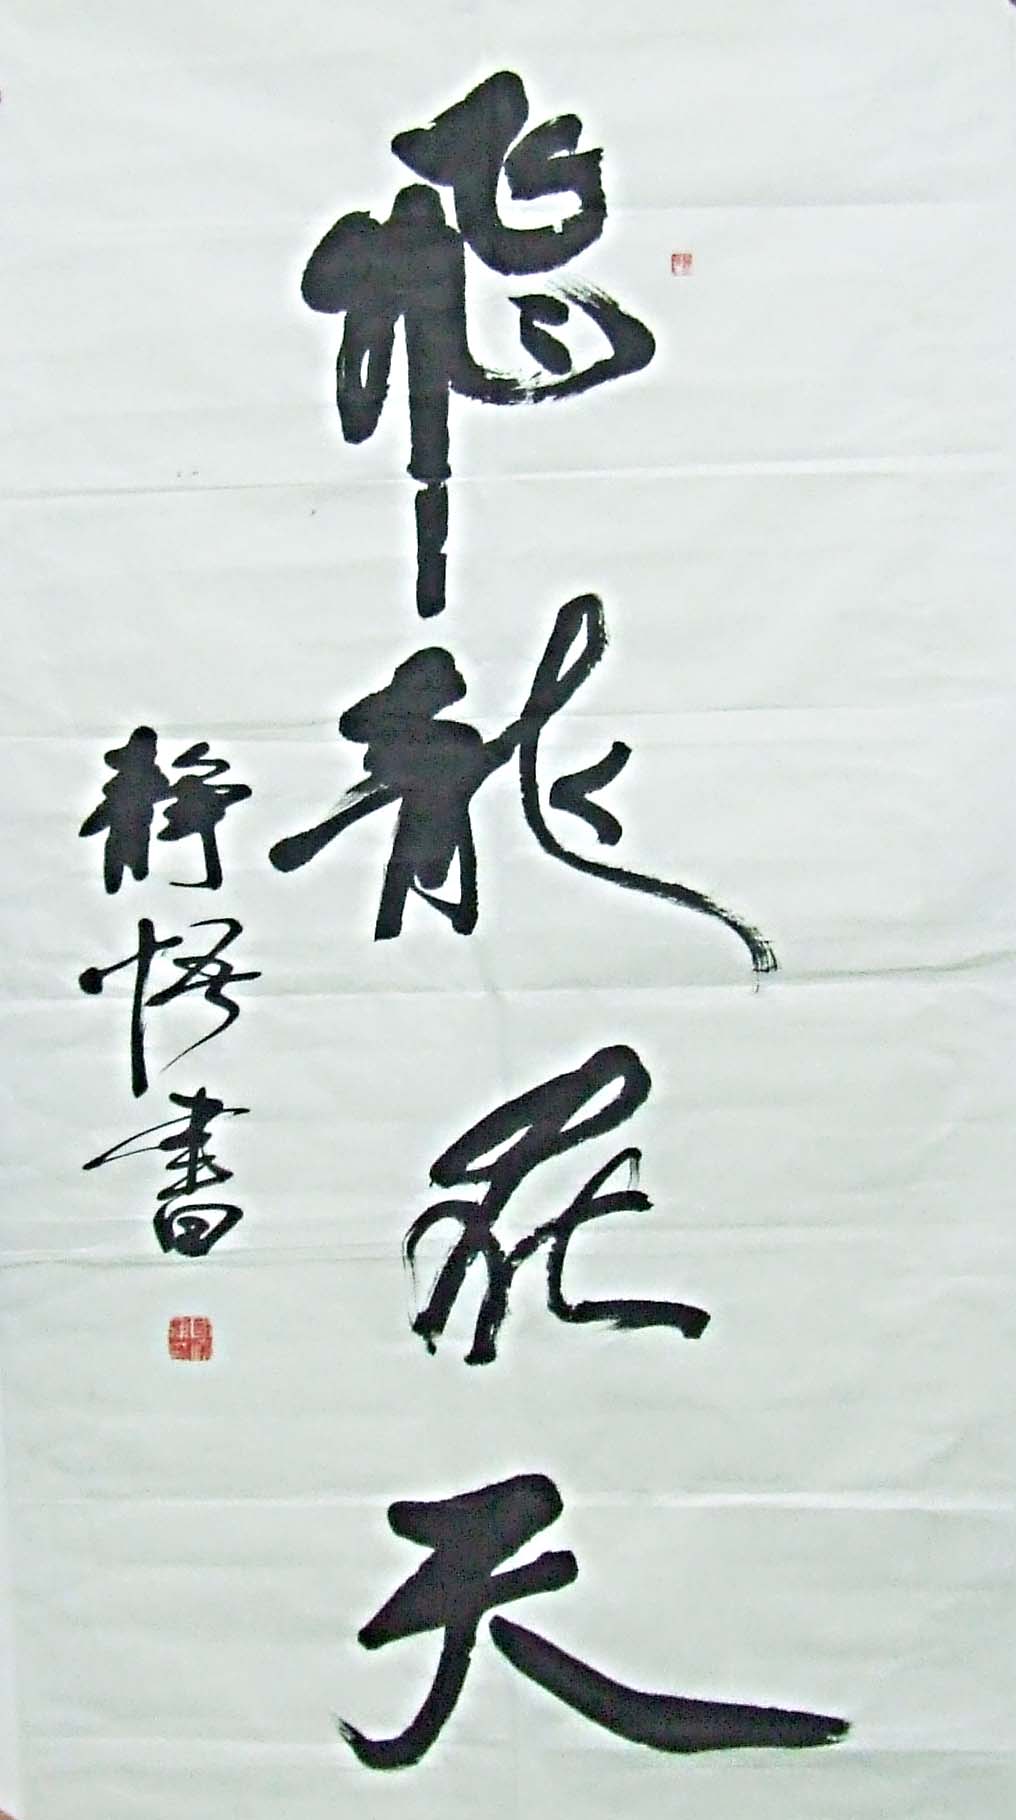 飛龍在天
靜悟書